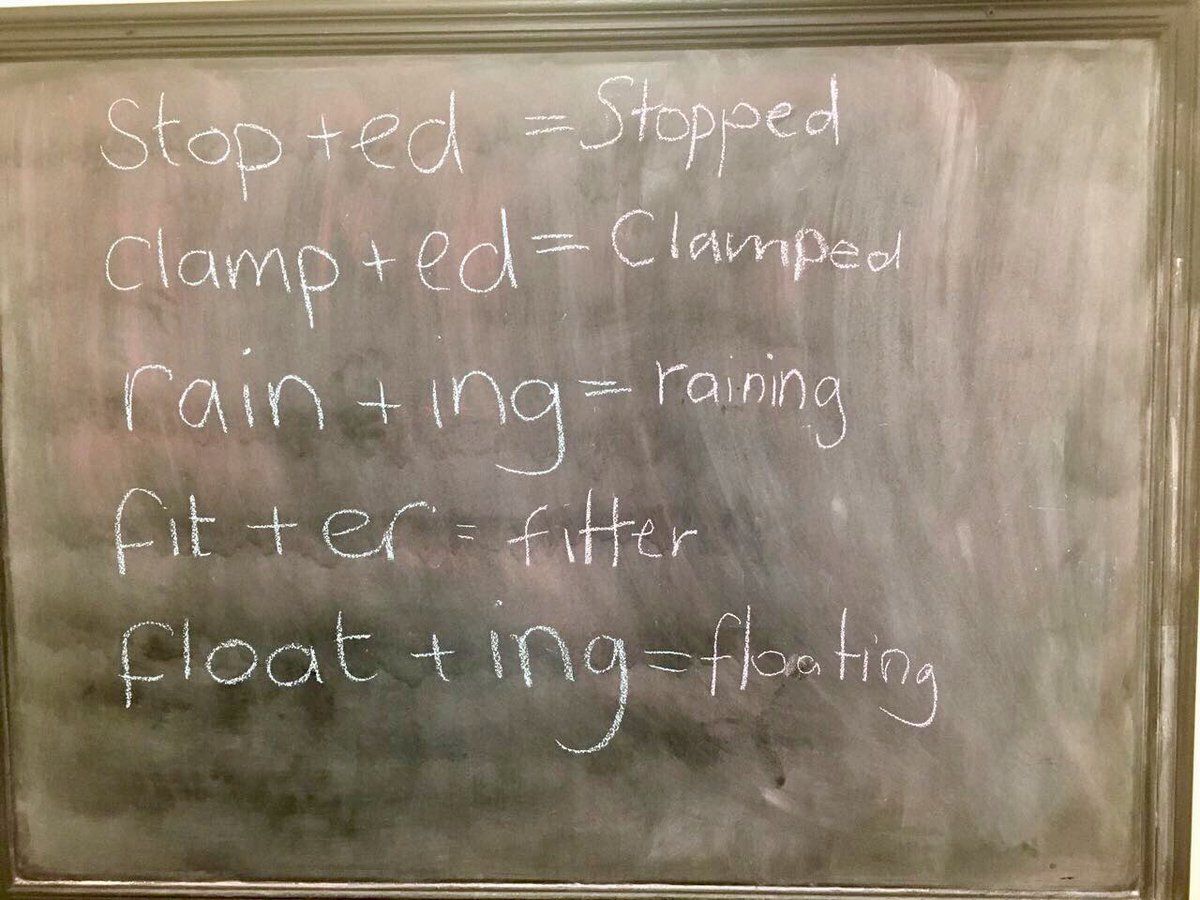 Stop + ed = Stopped
Clamp + ed = Clamped
rain + ing = raining
fit + er = fitter
float + ing = floating